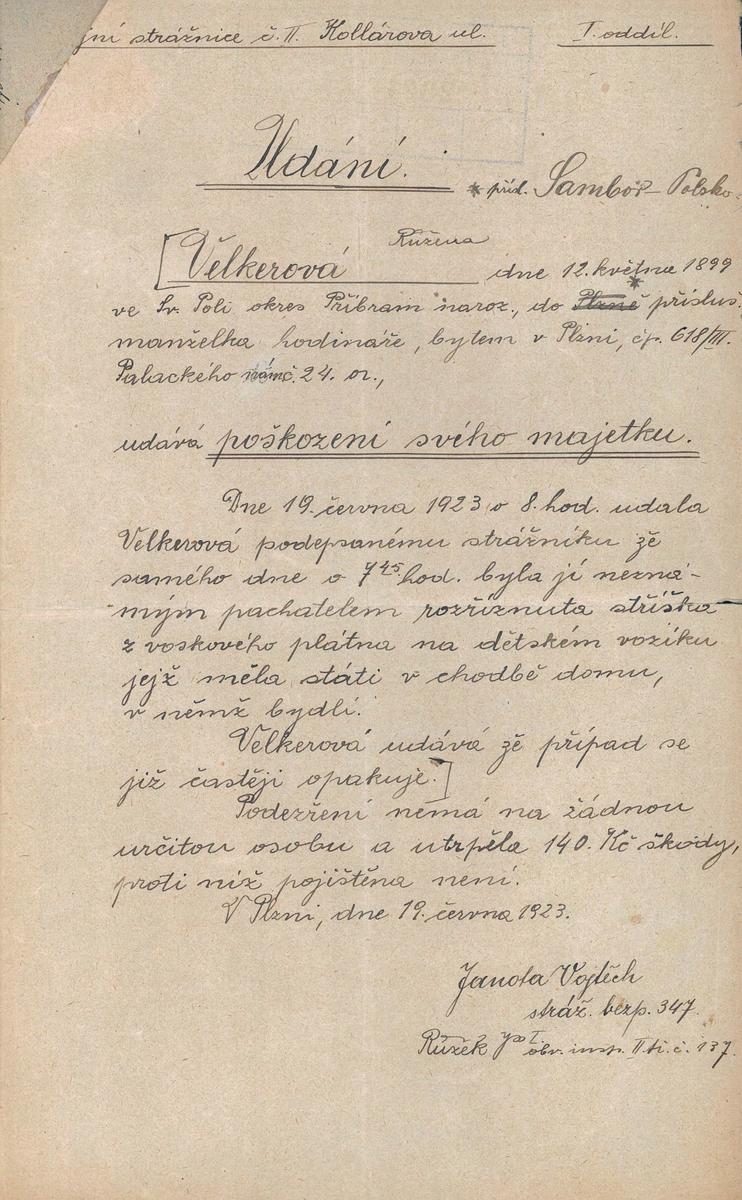 jní strážnice č. II. Kollárova ul. I. oddíl.
Udání.
* přísl. Sambor-Polsko.
Růžena
[Velkerová dne 12. května 1899
ve Sv. Poli okres Příbram naroz., do Plzně * přísluš.
manželka hodináře, bytem v Plzni, čp. 618/III.
Palackého nám. č. 24. or.,
udává poškození svého majetku.
Dne 19. června 1923 o 8. hod. udala
Velkerová podepsanému strážníku že
samého dne o 7 45 hod. byla jí nezná-
mým pachatelem rozříznuta stříška
z voskového plátna na dětském vozíku
jejž měla státi v chodbě domu,
v němž bydlí.
Velkerová udává že případ se
již častěji opakuje.]
Podezření nemá na žádnou
určitou osobu a utrpěla 140. Kč škody,
proti níž pojištěna není.
V Plzni, dne 19. června 1923.
Janota Vojtěch
stráž. bezp. 347.
Růžek obv. insp. II. tř. č. 137.